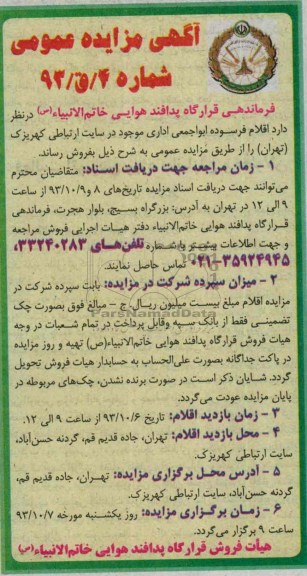 آگهی مزایده عمومی
شماره ۴/ق/۹۳
فرماندهی قرارگاه پدافند هوایی خاتم‌الانبیاء(ص) درنظر
دارد اقلام فرسوده ابواجمعی اداری موجود در سایت ارتباطی کهریزک
(تهران) را از طریق مزایده عمومی به شرح ذیل بفروش رساند.
۱ - زمان مراجعه جهت دریافت اسناد: متقاضیان محترم
می‌توانند جهت دریافت اسناد مزایده تاریخ‌های ۸ و۹۳/۱۰/۹ از ساعت
۹ الی ۱۲ در تهران به آدرس: بزرگراه بسیج، بلوار هجرت، فرماندهی
قرارگاه پدافند هوایی خاتم‌الانبیاء دفتر هیات اجرایی فروش مراجعه
و جهت اطلاعات بیشتر با شماره تلفن‌های ۳۳۲۴۰۲۸۳،
۰۲۱-۳۵۹۲۴۹۴۵ تماس حاصل نمایند.
۲ - میزان سپرده شرکت در مزایده: بابت سپرده شرکت در
مزایده اقلام مبلغ بیست میلیون ریال. ج - مبالغ فوق بصورت چک
تضمینی فقط از بانک سپه وقابل پرداخت در تمام شعبات در وجه
هیات فروش قرارگاه پدافند هوایی خاتم‌الانبیاء(ص) تهیه و روز مزایده
در پاکت جداگانه بصورت علی‌الحساب به حسابدار هیات فروش تحویل
گردد. شایان ذکر است در صورت برنده نشدن، چک‌های مربوطه در
پایان مزایده عودت می‌گردد.
۳ - زمان بازدید اقلام: تاریخ ۹۳/۱۰/۶ از ساعت ۹ الی ۱۲.
۴ - محل بازدید اقلام: تهران، جاده قدیم قم، گردنه حسن‌آباد،
سایت ارتباطی کهریزک.
۵ - آدرس محل برگزاری مزایده: تهران، جاده قدیم قم،
گردنه حسن‌آباد، سایت ارتباطی کهریزک.
۶ - زمان برگزاری مزایده: روز یکشنبه مورخه ۹۳/۱۰/۷
ساعت ۹ برگزار می‌گردد.
هیأت فروش قرارگاه پدافند هوایی خاتم‌الانبیاء(ص)
ParsNamadData